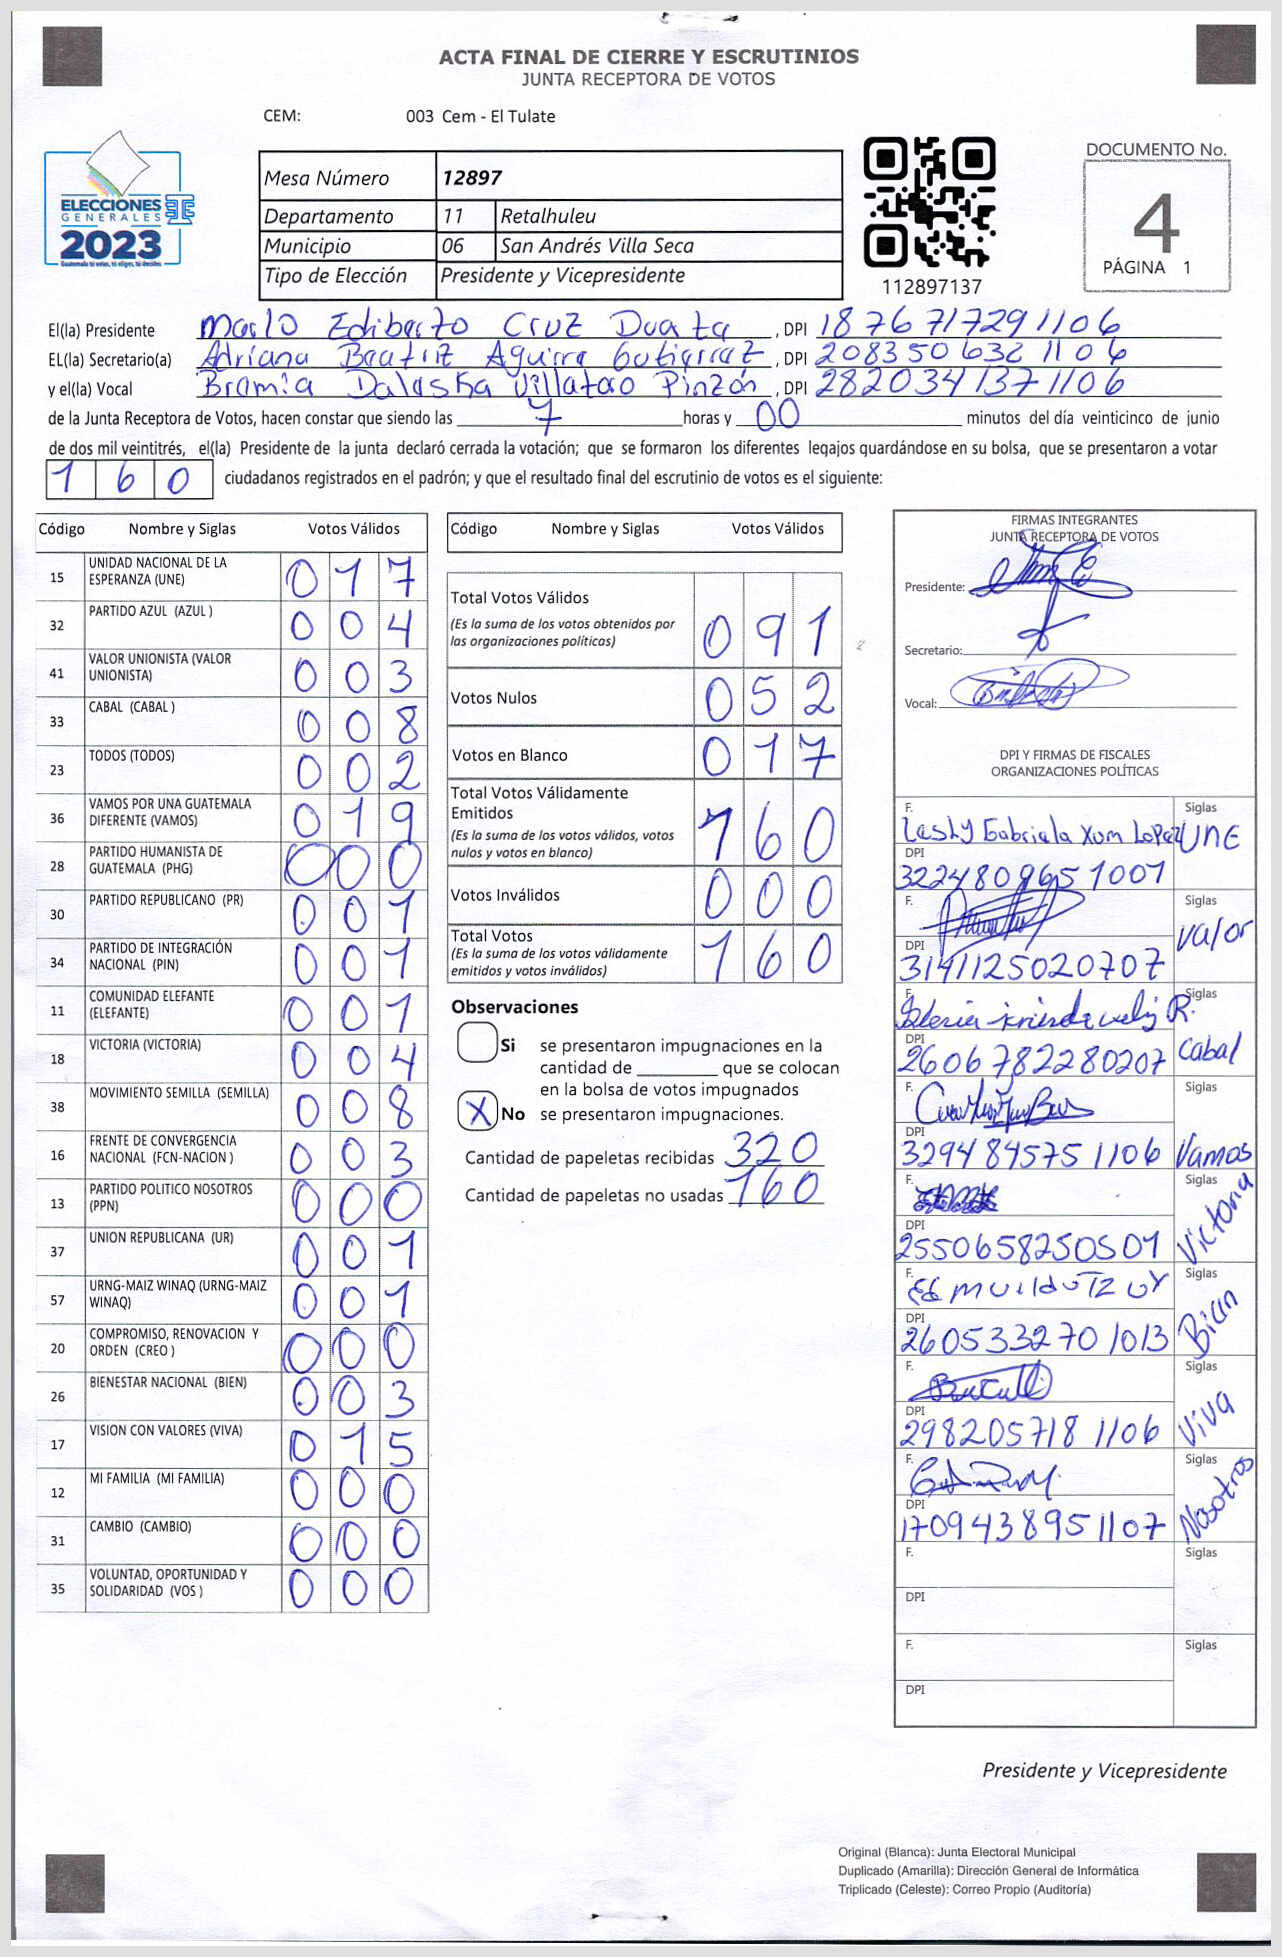 ACTA FINAL DE CIERRE Y ESCRUTINIOS
JUNTA RECEPTORA DE VOTOS
CEM: 003 Cem - El Tulate
ELECCIONES
GENERALES
2023
Mesa Número 12897
Departamento 11 Retalhuleu
Municipio 06 San Andrés Villa Seca
Tipo de Elección Presidente y Vicepresidente
112897137
DOCUMENTO No.
4
PÁGINA 1
El(la) Presidente Ediberto Cruz , DPI 1876717291106
EL(la) Secretario(a) Adriana Beatriz Aguirre , DPI 208350632 1106
y el(la) Vocal Pinzón, DPI 2820341371106
de la Junta Receptora de Votos, hacen constar que siendo las 7 horas y 00 minutos del día veinticinco de junio
de dos mil veintitrés, el(la) Presidente de la junta declaró cerrada la votación; que se formaron los diferentes legajos guardándose en su bolsa, que se presentaron a votar
160 ciudadanos registrados en el padrón; y que el resultado final del escrutinio de votos es el siguiente:
Código Nombre y Siglas Votos Válidos
15 UNIDAD NACIONAL DE LA ESPERANZA (UNE) 017
32 PARTIDO AZUL (AZUL ) 004
41 VALOR UNIONISTA (VALOR UNIONISTA) 003
33 CABAL (CABAL ) 008
23 TODOS (TODOS) 002
36 VAMOS POR UNA GUATEMALA DIFERENTE (VAMOS) 019
28 PARTIDO HUMANISTA DE GUATEMALA (PHG) 000
30 PARTIDO REPUBLICANO (PR) 001
34 PARTIDO DE INTEGRACIÓN NACIONAL (PIN) 001
11 COMUNIDAD ELEFANTE (ELEFANTE) 001
18 VICTORIA (VICTORIA) 004
38 MOVIMIENTO SEMILLA (SEMILLA) 008
16 FRENTE DE CONVERGENCIA NACIONAL (FCN-NACION ) 003
13 PARTIDO POLITICO NOSOTROS (PPN) 000
37 UNION REPUBLICANA (UR) 001
57 URNG-MAIZ WINAQ (URNG-MAIZ WINAQ) 001
20 COMPROMISO, RENOVACION Y ORDEN (CREO ) 000
26 BIENESTAR NACIONAL (BIEN) 003
17 VISION CON VALORES (VIVA) 015
12 MI FAMILIA (MI FAMILIA) 000
31 CAMBIO (CAMBIO) 000
35 VOLUNTAD, OPORTUNIDAD Y SOLIDARIDAD (VOS ) 000
Código Nombre y Siglas Votos Válidos
Total Votos Válidos 091
(Es la suma de los votos obtenidos por
las organizaciones políticas)
Votos Nulos 052
Votos en Blanco 017
Total Votos Válidamente
Emitidos 160
(Es la suma de los votos válidos, votos
nulos y votos en blanco)
Votos Inválidos 000
Total Votos 160
(Es la suma de los votos válidamente
emitidos y votos inválidos)
Observaciones
Si se presentaron impugnaciones en la
cantidad de ________ que se colocan
en la bolsa de votos impugnados
X No se presentaron impugnaciones.
Cantidad de papeletas recibidas 320
Cantidad de papeletas no usadas 160
FIRMAS INTEGRANTES
JUNTA RECEPTORA DE VOTOS
Presidente:
Secretario:
Vocal:
DPI Y FIRMAS DE FISCALES
ORGANIZACIONES POLÍTICAS
F. Lesly Gabriela Xum Lopez Siglas UNE
DPI 3224809651001
F. Siglas Valor
DPI 3141125020707
F. Siglas Cabal
DPI 2606782280207
F. Siglas Vamos
DPI 3294845751106
F. Siglas Victoria
DPI 2550658250501
F. Siglas Bien
DPI 2605332701013
F. Siglas Viva
DPI 2982057181106
F. Siglas Nosotros
DPI 1709438951107
F. Siglas
DPI
F. Siglas
DPI
Presidente y Vicepresidente
Original (Blanca): Junta Electoral Municipal
Duplicado (Amarilla): Dirección General de Informática
Triplicado (Celeste): Correo Propio (Auditoría)